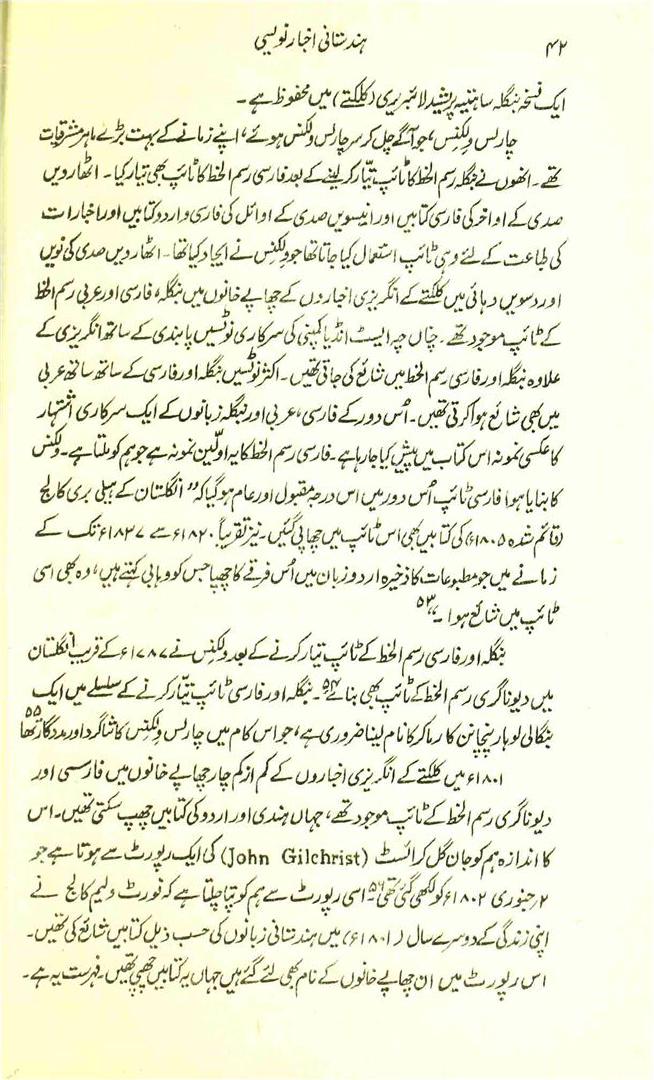 ۴۲
ہندستانی اخبار نویسی
ایک نسخہ بنگلہ ساہتیہ پریشد لائبریری (کلکتے) میں محفوظ ہے۔
چارلس ولکنس، جو آگے چل کر سر چارلس ولکنس ہوئے، اپنے زمانے کے بہت بڑے ماہر مشرقیات
تھے۔ انھوں نے بنگلہ رسم الخط کا ٹائپ تیار کر لینے کے بعد فارسی رسم الخط کا ٹائپ بھی تیار کیا۔ اٹھارویں
صدی کے اواخر کی فارسی کتابیں اور انیسویں صدی کے اوائل کی فارسی و اردو کتابیں اور اخبارات
کی طباعت کے لئے وہی ٹائپ استعمال کیا جاتا تھا جو ولکنس نے ایجاد کیا تھا۔ اٹھارویں صدی کی نویں
اور دسویں دہائی میں کلکتے کے انگریزی اخباروں کے چھاپے خانوں میں بنگلہ، فارسی اور عربی رسم الخط
کے ٹائپ موجود تھے۔ چناں چہ ایسٹ انڈیا کمپنی کی سرکاری نوٹسیں پابندی کے ساتھ انگریزی کے
علاوہ بنگلہ اور فارسی رسم الخط میں شائع کی جاتی تھیں۔ اکثر نوٹسیں بنگلہ اور فارسی کے ساتھ ساتھ عربی
میں بھی شائع ہوا کرتی تھیں۔ اُس دور کے فارسی، عربی اور بنگلہ زبانوں کے ایک سرکاری اشتہار
کا عکسی نمونہ اس کتاب میں پیش کیا جا رہا ہے۔ فارسی رسم الخط کا یہ اولین نمونہ ہے جو ہم کو ملتا ہے۔ ولکنس
کا بنایا ہوا فارسی ٹائپ اُس دور میں اس درجہ مقبول اور عام ہو گیا کہ "انگلستان کے ہیلی بری کالج
(قائم شدہ ۱۸۰۵ء) کی کتابیں بھی اس ٹائپ میں چھاپی گئیں۔ نیز تقریباً ۱۸۲۰ء سے ۱۸۳۷ء تک کے
زمانے میں جو مطبوعات کا ذخیرہ اردو زبان میں اُس فرقے کا چھپا جس کو وہابی کہتے ہیں، وہ بھی اسی
ٹائپ میں شائع ہوا۔"۵۳
بنگلہ اور فارسی رسم الخط کے ٹائپ تیار کرنے کے بعد ولکنس نے ۱۷۸۷ء کے قریب انگلستان
میں دیوناگری رسم الخط کے ٹائپ بھی بنائے۵۴۔ بنگلہ اور فارسی ٹائپ تیار کرنے کے سلسلے میں ایک
بنگالی لوہار پنچانن کارماکر کا نام لینا ضروری ہے، جو اس کام میں چارلس ولکنس کا شاگرد اور مددگار تھا۵۵
۱۸۰۱ء میں کلکتے کے انگریزی اخباروں کے کم از کم چار چھاپے خانوں میں فارسی اور
دیوناگری رسم الخط کے ٹائپ موجود تھے، جہاں ہندی اور اردو کی کتابیں چھپ سکتی تھیں۔ اس
کا اندازہ ہم کو جان گل کرائسٹ (John Gilchrist) کی ایک رپورٹ سے ہوتا ہے جو
۲ر جنوری ۱۸۰۲ء کو لکھی گئی تھی۵۶۔ اسی رپورٹ سے ہم کو پتا چلتا ہے کہ فورٹ ولیم کالج نے
اپنی زندگی کے دوسرے سال (۱۸۰۱ء) میں ہندستانی زبانوں کی حسب ذیل کتابیں شائع کی تھیں۔
اس رپورٹ میں ان چھاپے خانوں کے نام بھی لئے گئے ہیں جہاں یہ کتابیں چھپی تھیں۔ فہرست یہ ہے۔